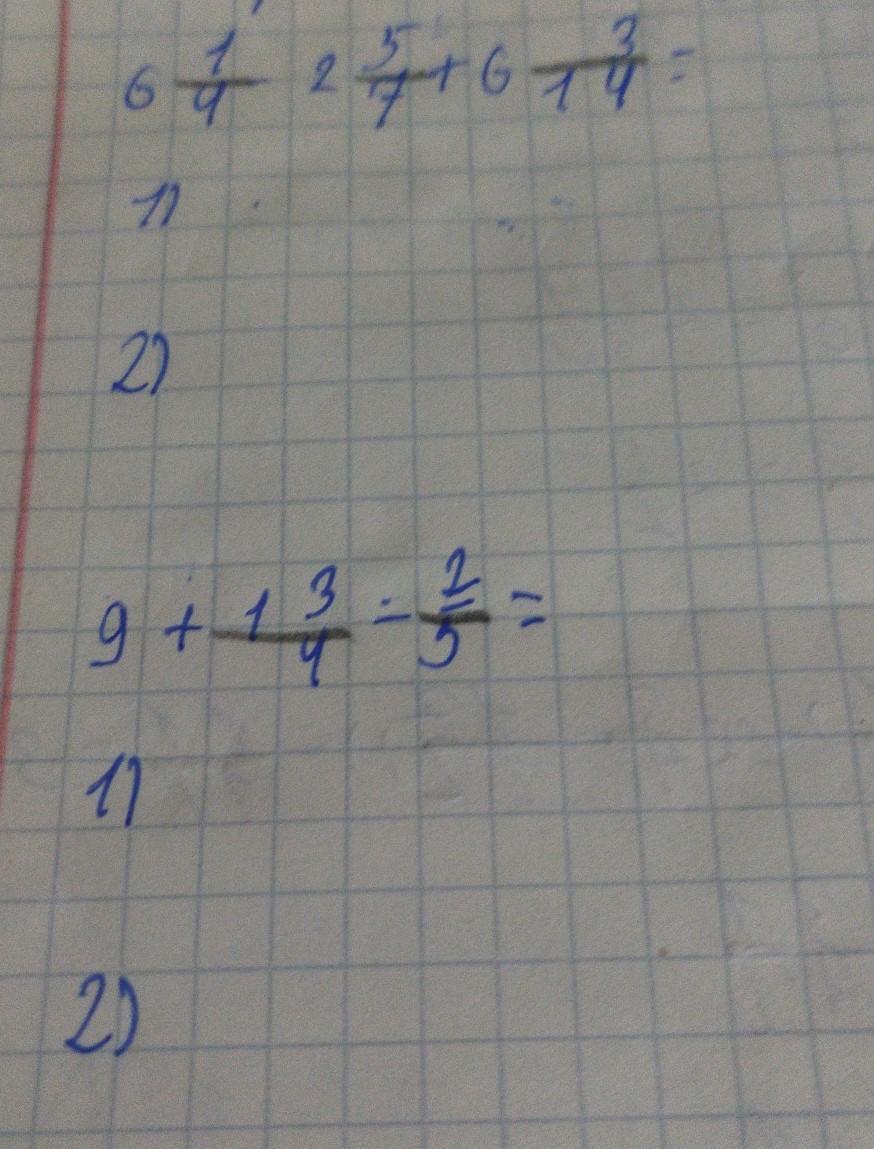 6 1/4 - 2 5/7 + 6 3/14 =
1)
2)
9 + 13/4 - 2/5 =
1)
2)